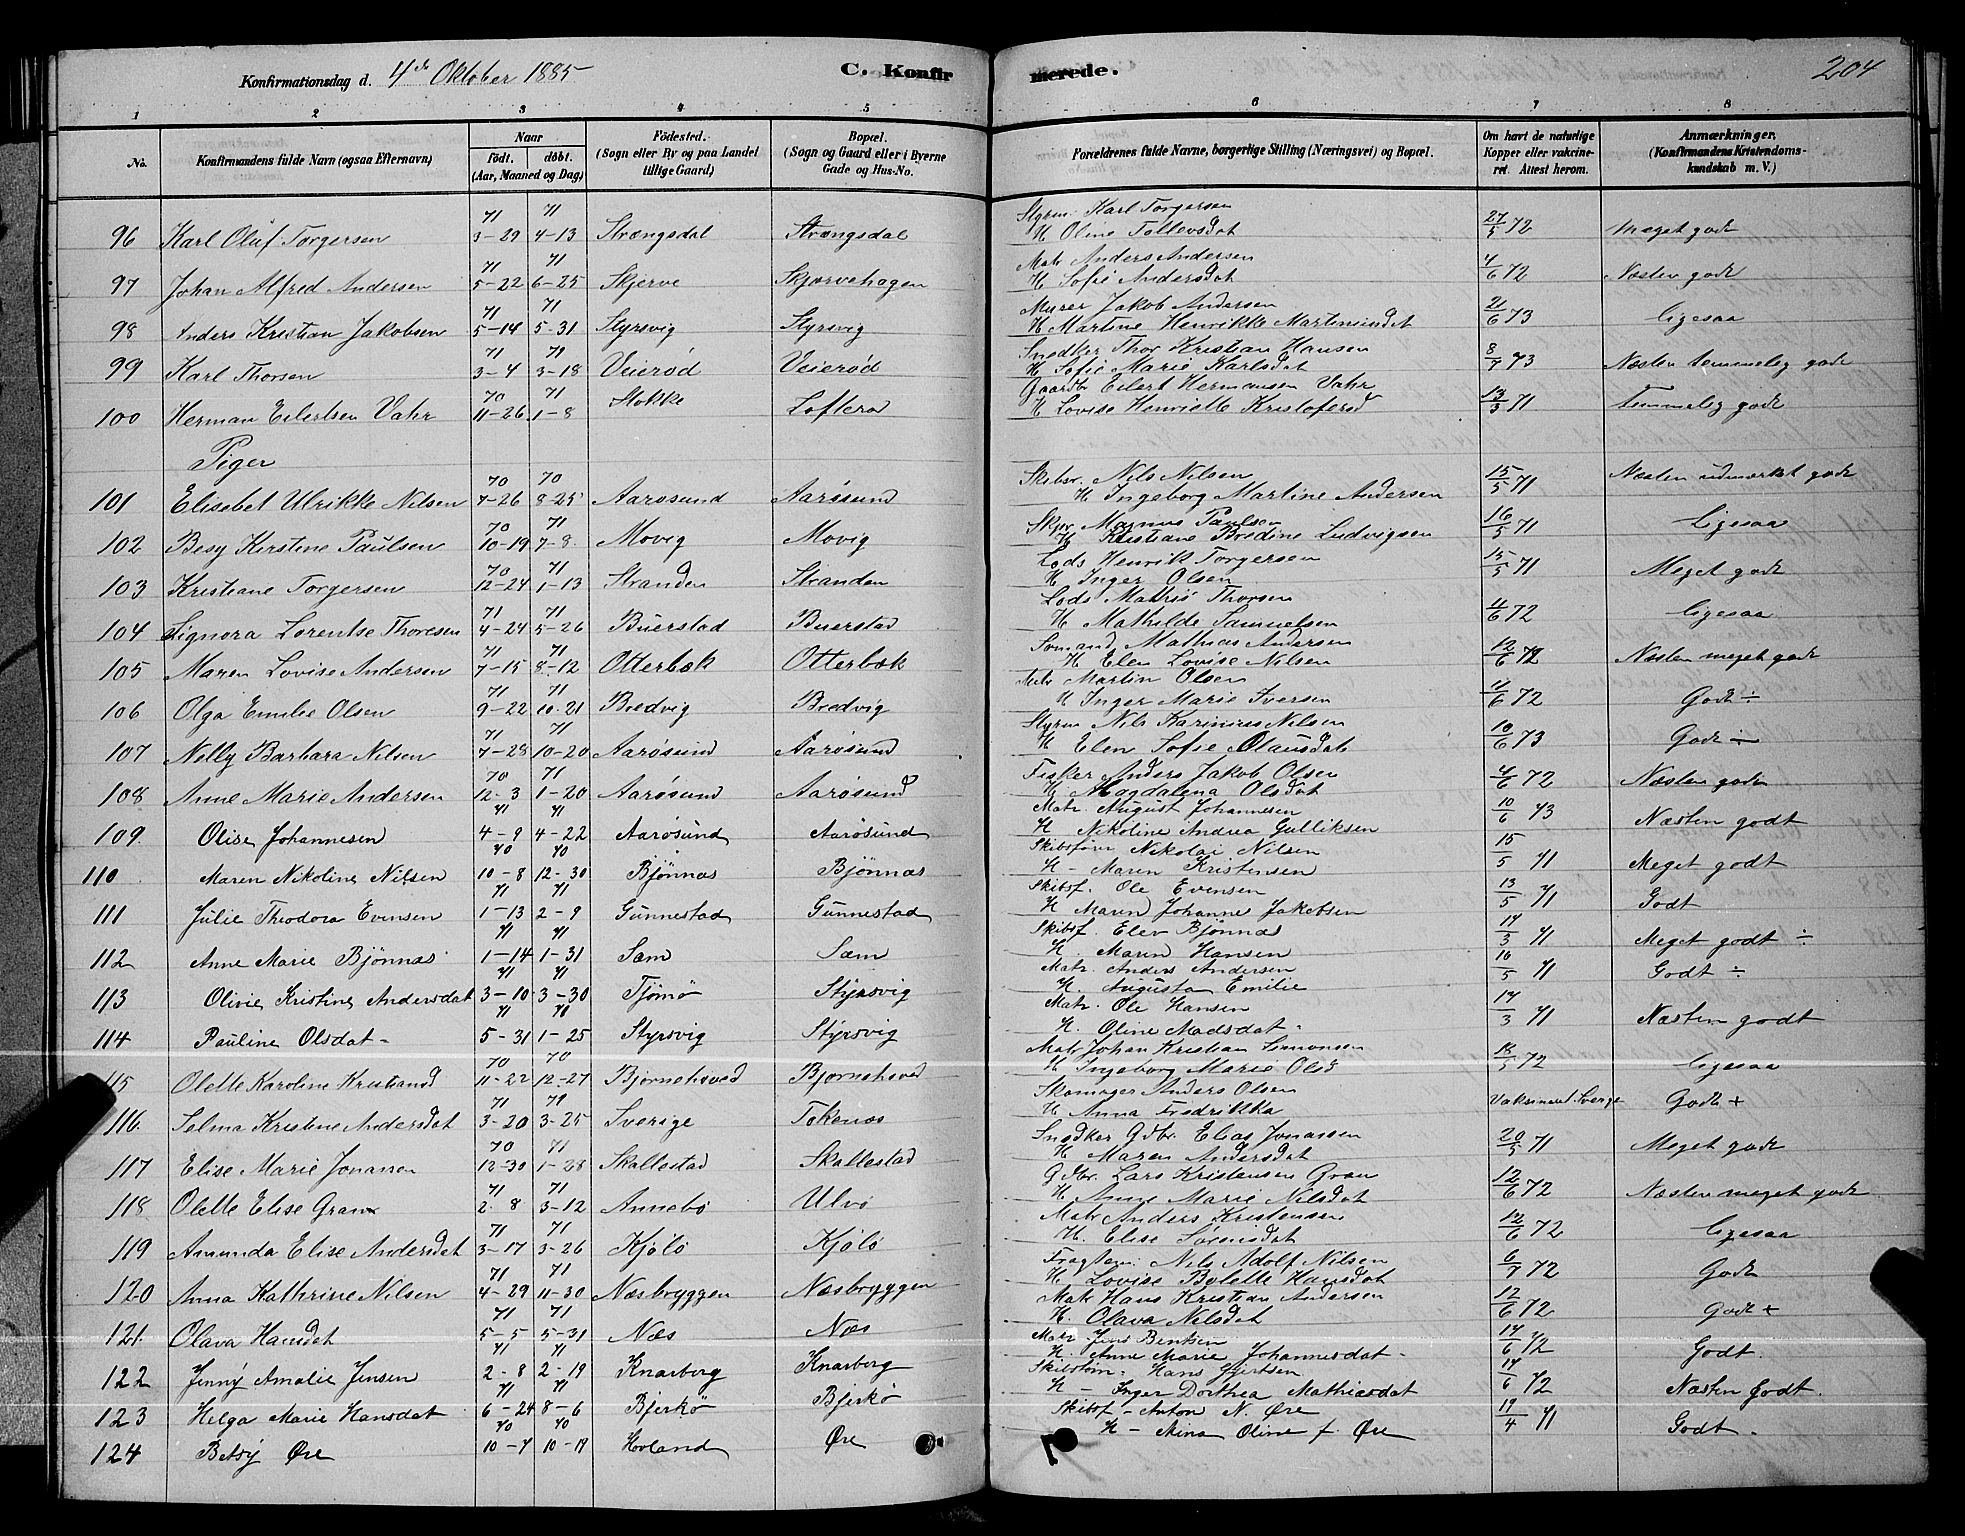 Konfirmationsdag d. 4de Oktober 1885 C. Konfir merede. 204
1 2 3 4 5 6 7 8
No. Konfirmandens fulde Navn (ogsaa Efternavn) Naar født. døbt. (Aar, Maaned og Dag) Fødested. (Sogn eller By og paa Landet tillige Gaard) Bopæl. (Sogn og Gaard eller i Byerne Gade og Hus-No. Forældrenes fulde Navne, borgerlige Stilling (Næringsvei) og Bopæl. Om havt de naturlige Kopper eller vakcineret. Attest herom. Anmærkninger. (Konfirmandens Kristendomskundskab m. V.)
71 71 Styrm. Karl Torgersen
96 Karl Oluf Torgersen 3-29 4-13 Strængsdal Strængsdal H Oline Tollevsdat 27/5 72 Meget godt
71 71 Matr Anders Andersen
97 Johan Alfred Andersen 5-22 6-25 Skjerve Skjærvehagen H Sofie Andersdat 4/6 72 Næsten godt
71 71 Murer Jakob Andersen
98 Anders Kristian Jakobsen 5-14 5-31 Styrsvig Styrsvig H Martine Henrikke Martinusdat 21/6 73 Ligesaa
71 71 Snedker Thor Kristian Hansen
99 Karl Thorsen 3-4 3-18 Veierød Veierød H Sofie Marie Karlsdat 8/7 73 Næsten temmelig godt
70 71 Gaardbr Eilert Hermansen Vahr
100 Herman Eilertsen Vahr 11-26 1-8 Stokke Lofterød H Lovise Henriette Kristofersd 13/3 71 Temmelig godt
Piger
70 70 Nils Nilsen
101 Elisebet Ulrikke Nilsen 7-26 8-25 Aarøsund Aarøsund H Ingeborg Martine Andersen 15/5 71 Næsten udmærket godt
70 71 Magnus Paulsen
102 Besy Kirstine Paulsen 10-19 7-8 Movig Movig H Kristiane Bredine Ludvigsen 16/5 71 Ligesaa
70 71 Lods Henrik Torgersen
103 Kristiane Torgersen 12-24 1-13 Stranden Stranden H Inger Olsen 15/5 71 Meget godt
71 71 Lods Mathis Thorsen
104 Signora Lorentse Thoresen 4-24 5-26 Buerstad Buerstad H Mathilde Samuelsen 4/6 72 Ligesaa
71 71 Sømand Mathias Andersen
105 Maren Lovise Andersen 7-15 8-12 Otterbæk Otterbæk H Elen Lovise Nilsen 12/6 72 Næsten meget godt
71 71 Matr Martin Olsen
106 Olga Emilie Olsen 9-22 10-21 Bredvig Bredvig H Inger Marie Iversen 4/6 72 Godt ÷
71 71 Styrm Nils Karinius Nilsen
107 Nelly Barbara Nilsen 7-28 10-20 Aarøsund Aarøsund H Elen Sofie Olausdat 10/6 73 Godt ÷
70 71 Fisker Anders Jakob Olsen
108 Anne Marie Andersen 12-3 1-20 Aarøsund Aarøsund H Magdalena Olsdat 4/6 72 Næsten godt
71 71 Matr. August Johannesen
109. Olise Johannesen 4-9 4-22 Aarøsund Aarøsund H Nikoline Andrea Gulliksen 10/6 73 Næsten godt
70 70 Skibsfører Nikolai Nilsen
110 Maren Nikoline Nilsen 10-8 12-30 Bjønnæs Bjønnæs H - Maren Kristensen 15/5 71 Meget godt
71 71 Skibsf. Ole Evensen
111 Julie Theodora Evensen 1-13 2-9 Gunnestad Gunnestad H Maren Johanne Jakobsen 13/5 71 Godt
71 71 Skibsf. Elev Bjønnæs
112 Anne Marie Bjønnæs 1-14 1-31 Sæm Sæm H. Maren Hansen 17/3 71 Meget godt ÷
71 71 Matr. Anders Andersen
113 Olivie Kristine Andersdat 3-10 3-30 Tjømø Styrsvig H. Augusta Emilie 16/5 71 Godt ÷
71 71 Matr. Ole Hansen
114 Pauline Olsdat - 5-31 1-25 Styrsvig Styrsvig H. Oline Madsdat - 17/3 71 Næsten godt
70 70 Matr Johan Kristian Simonsen
115 Olette Karoline Kristiansd 11-22 12-27 Bjørnehoved Bjørnehoved H Ingeborg Marie Olsd 72 Ligesaa
71 71 Skomager Anders Olsen
116. Selma Kristine Andersdat 3-20 3-25 Sverige Tokenæs H Anna Fredrikka Vaksinert i Sverge Godt +
70 71 Snedker Gdbr. Elias Jonassen
117 Elise Marie Jonassen 12-30 1-28 Skallestad Skallestad H Maren Andersdat 20/5 71 Meget godt
71 71 Gdbr. Lars Kristensen Gran
118 Olette Elise Gran 2-8 3-12 Annebø Ulvø H Anne Marie Nilsdat 12/6 72 Næsten meget godt
71 71 Matr Anders Kristensen
119 Amunda Elise Andersdat 3-17 3-26 Kjølø Kjølø H. Elise Sørensdat 12/6 72 Ligesaa
71 71 Fragtem. Nils Adolf Nilsen
120 Anna Kathrine Nilsen 4-29 11-30 Næsbryggen Næsbryggen H Lovise Bolette Hansdat 6/7 72 Godt
71 71 Matr Hans Kristian Andersen
121. Olava Hansdat 5-5 5-31 Næs Næs H. Olava Nilsdat 12/6 72 Godt +
71 71 Matr. Jens Bentsen
122 Jenny Amalie Jensen 2-8 2-19 Knarberg Knarberg H. Anne Marie Johannesdat - 17/6 72 Godt.
71 71 Skibstøm. Hans Gjertsen
123 Helga Marie Hansdat 6-24 8-6 Bjerkø Bjerkø H - Inger Dorthea Mathiesdat 17/6 72 Næsten Godt.
70 70 Skibsf - Anton N. Øre
124 Betsy Øre 10-7 10-19 Hovland Øre H - Mina Oline f. Øre 19/4 71 Godt -